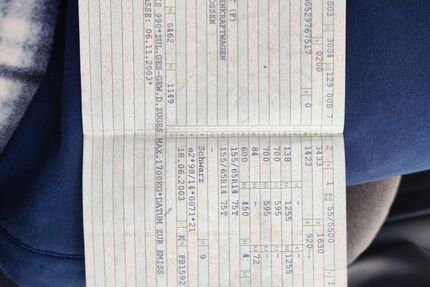 003 3004 129 00B 7
0200
00529767517 0
(F)
ENKRAFTWAGEN
OSSEN
0462 1149
2 1 55/5500
3433 1630
1423 920--
138 1255 1255
700 - 595 -
700 - 595 -
84 - 72
600 450 4
155/65R14 75T
155/65R14 75T
-
Schwarz 9
e2*98/14*0071*21
18.06.2003 K- FB1592
S 990*ZUL.GES-GEW.D.ZUGES MAX.1700KG*DATUM ZUR EMISS
ASSE: 06.11.2003*